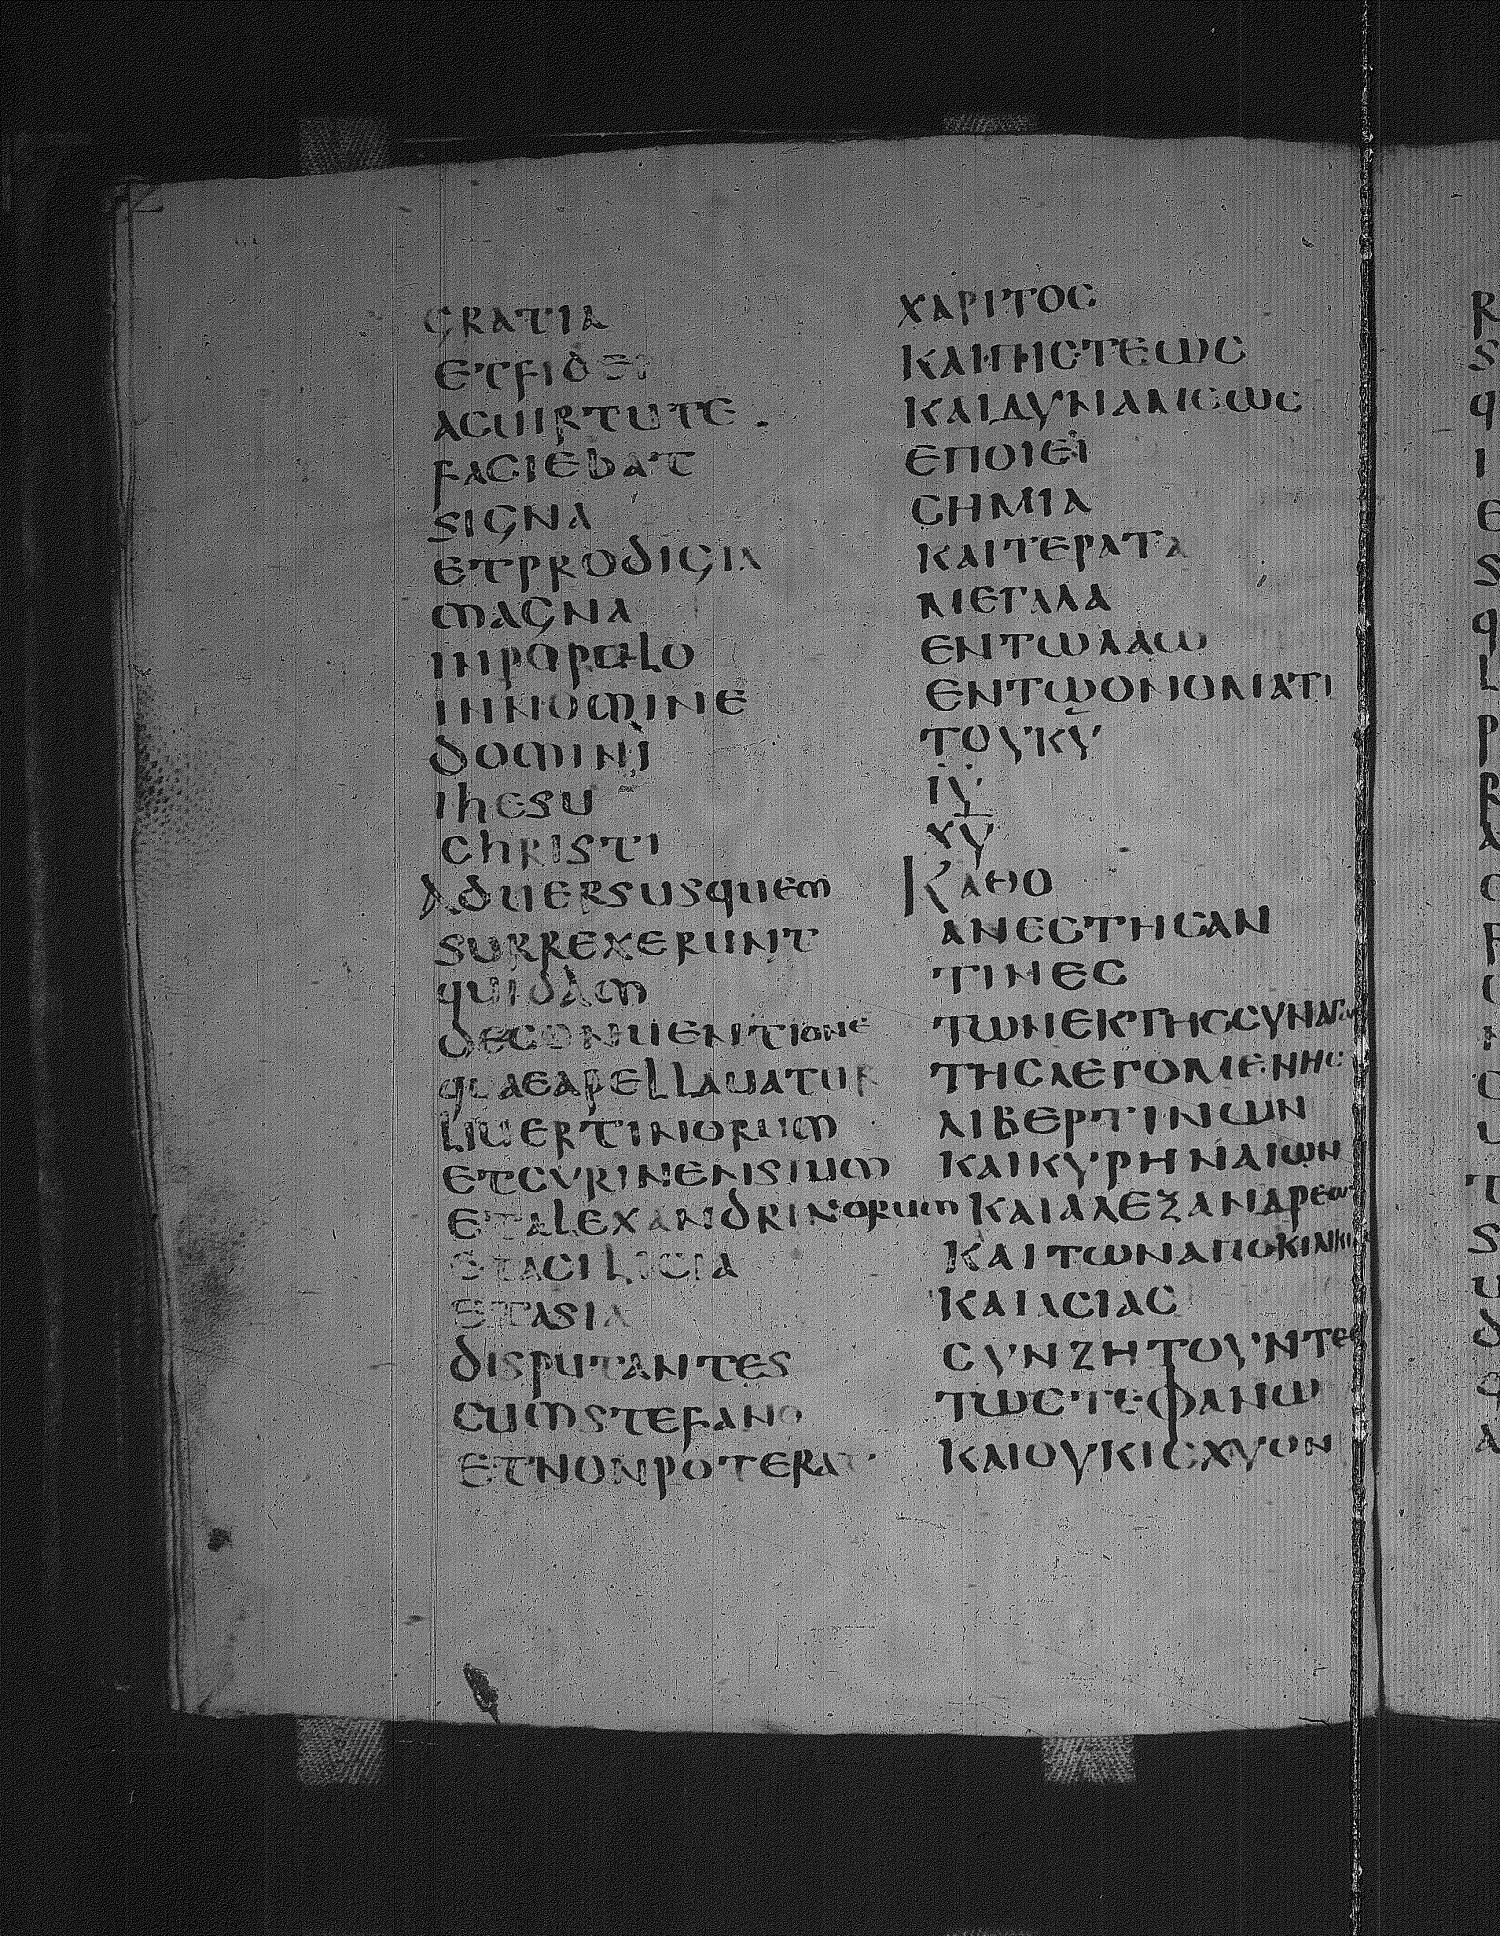 GRATIA
ETFIDEI
ACUIRTUTE.
FACIEBAT
SIGNA
ETPRODIGIA
MAGNA
INPOPOLO
INNOMINE
DOMINI
IHESU
CHRISTI
ADUERSUSQUEM
SURREXERUNT
QUIDAM
DECONUENTIONE
QUAEAPELLAUATUR
LIUERTINORUM
ETCYRINENSIUM
ETALEXANDRINORUM
ETACILICIA
ETASIA
DISPUTANTES
CUMSTEFANO
ETNONPOTERAT
ΧΑΡΙΤΟC
ΚΑΙΠΙCΤΕΩC
ΚΑΙΔΥΝΑΜΕΩC
ΕΠΟΙΕΙ
CΗΜΙΑ
ΚΑΙΤΕΡΑΤΑ
ΜΕΓΑΛΑ
ΕΝΤΩΛΑΩ
ΕΝΤΩΟΝΟΜΑΤΙ
ΤΟΥΚΥ
ΙΥ
ΧΥ
ΚΑΘΟ
ΑΝΕCΤΗCΑΝ
ΤΙΝΕC
ΤΩΝΕΚΤΗCCΥΝΑΓΩ
ΤΗCΛΕΓΟΜΕΝΗC
ΛΙΒΕΡΤΙΝΩΝ
ΚΑΙΚΥΡΗΝΑΙΩΝ
ΚΑΙΑΛΕΞΑΝΔΡΕΩΝ
ΚΑΙΤΩΝΑΠΟΚΙΛΙΚΙΑ
ΚΑΙΑCΙΑC
CΥΝΖΗΤΟΥΝΤΕC
ΤΩCΤΕΦΑΝΩ
ΚΑΙΟΥΚΙCΧΥΟΝ